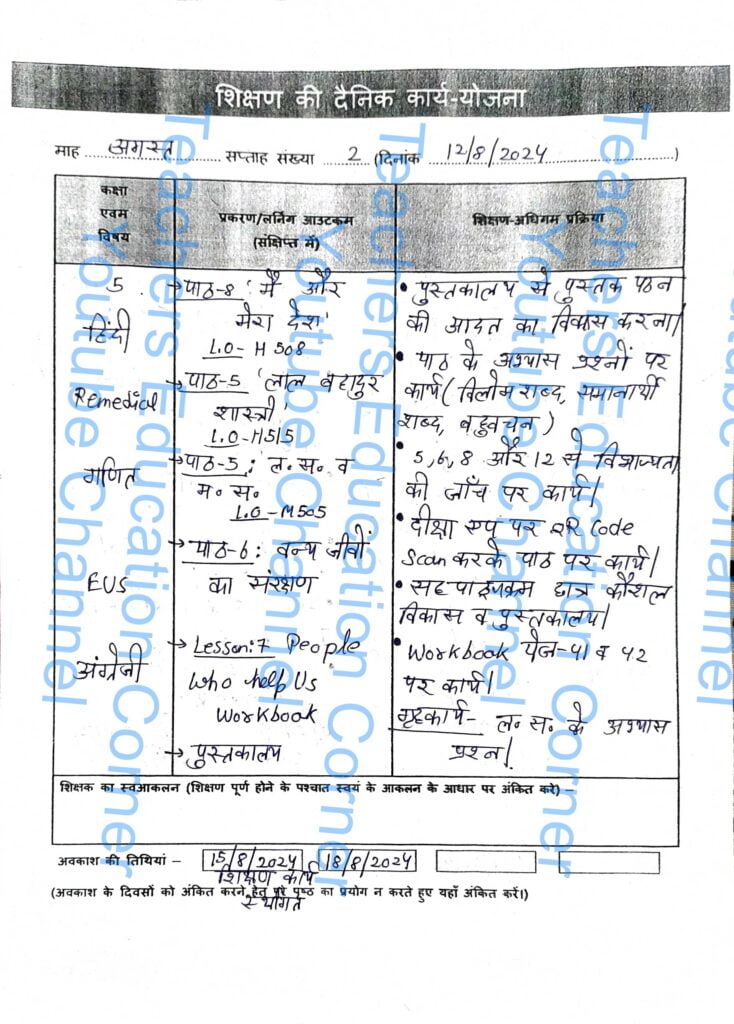 शिक्षण की दैनिक कार्य-योजना
माह अगस्त सप्ताह संख्या 2 (दिनांक 12/8/2024)
कक्षा एवम विषय
प्रकरण/लर्निंग आउटकम (संक्षिप्त में)
शिक्षण-अधिगम प्रक्रिया
5
हिंदी
Remedial
गणित
EVS
अंग्रेजी
→ पाठ-8 'मैं और
मेरा देश'
L.O- H 508
→ पाठ-5 'लाल बहादुर
शास्त्री'
L.O-H515
→ पाठ-5: ल.स. व
म.स.
L.O-M505
→ पाठ-6: वन्य जीवों
का संरक्षण
→ Lesson:7 People
Who help Us
Workbook
→ पुस्तकालय
• पुस्तकालय से पुस्तक पठन
की आदत का विकास करना।
• पाठ के अभ्यास प्रश्नों पर
कार्य (विलोम शब्द, समानार्थी
शब्द, बहुवचन)
• 5,6,8 और 12 से विभाज्यता
की जाँच पर कार्य।
• दीक्षा एप पर QR Code
Scan करके पाठ पर कार्य।
• सह पाठ्यक्रम छात्र कौशल
विकास व पुस्तकालय।
• Workbook पेज-41 व 42
पर कार्य।
गृहकार्य- ल.स. के अभ्यास
प्रश्न।
शिक्षक का स्वआकलन (शिक्षण पूर्ण होने के पश्चात स्वयं के आकलन के आधार पर अंकित करे) –
अवकाश की तिथियां – 15/8/2024 18/8/2024
शिक्षण कार्य
स्थगित
(अवकाश के दिवसों को अंकित करने हेतु पूरे पृष्ठ का प्रयोग न करते हुए यहाँ अंकित करें।)
Teachers Education Corner
Youtube Channel
Teachers Education Corner
Youtube Channel